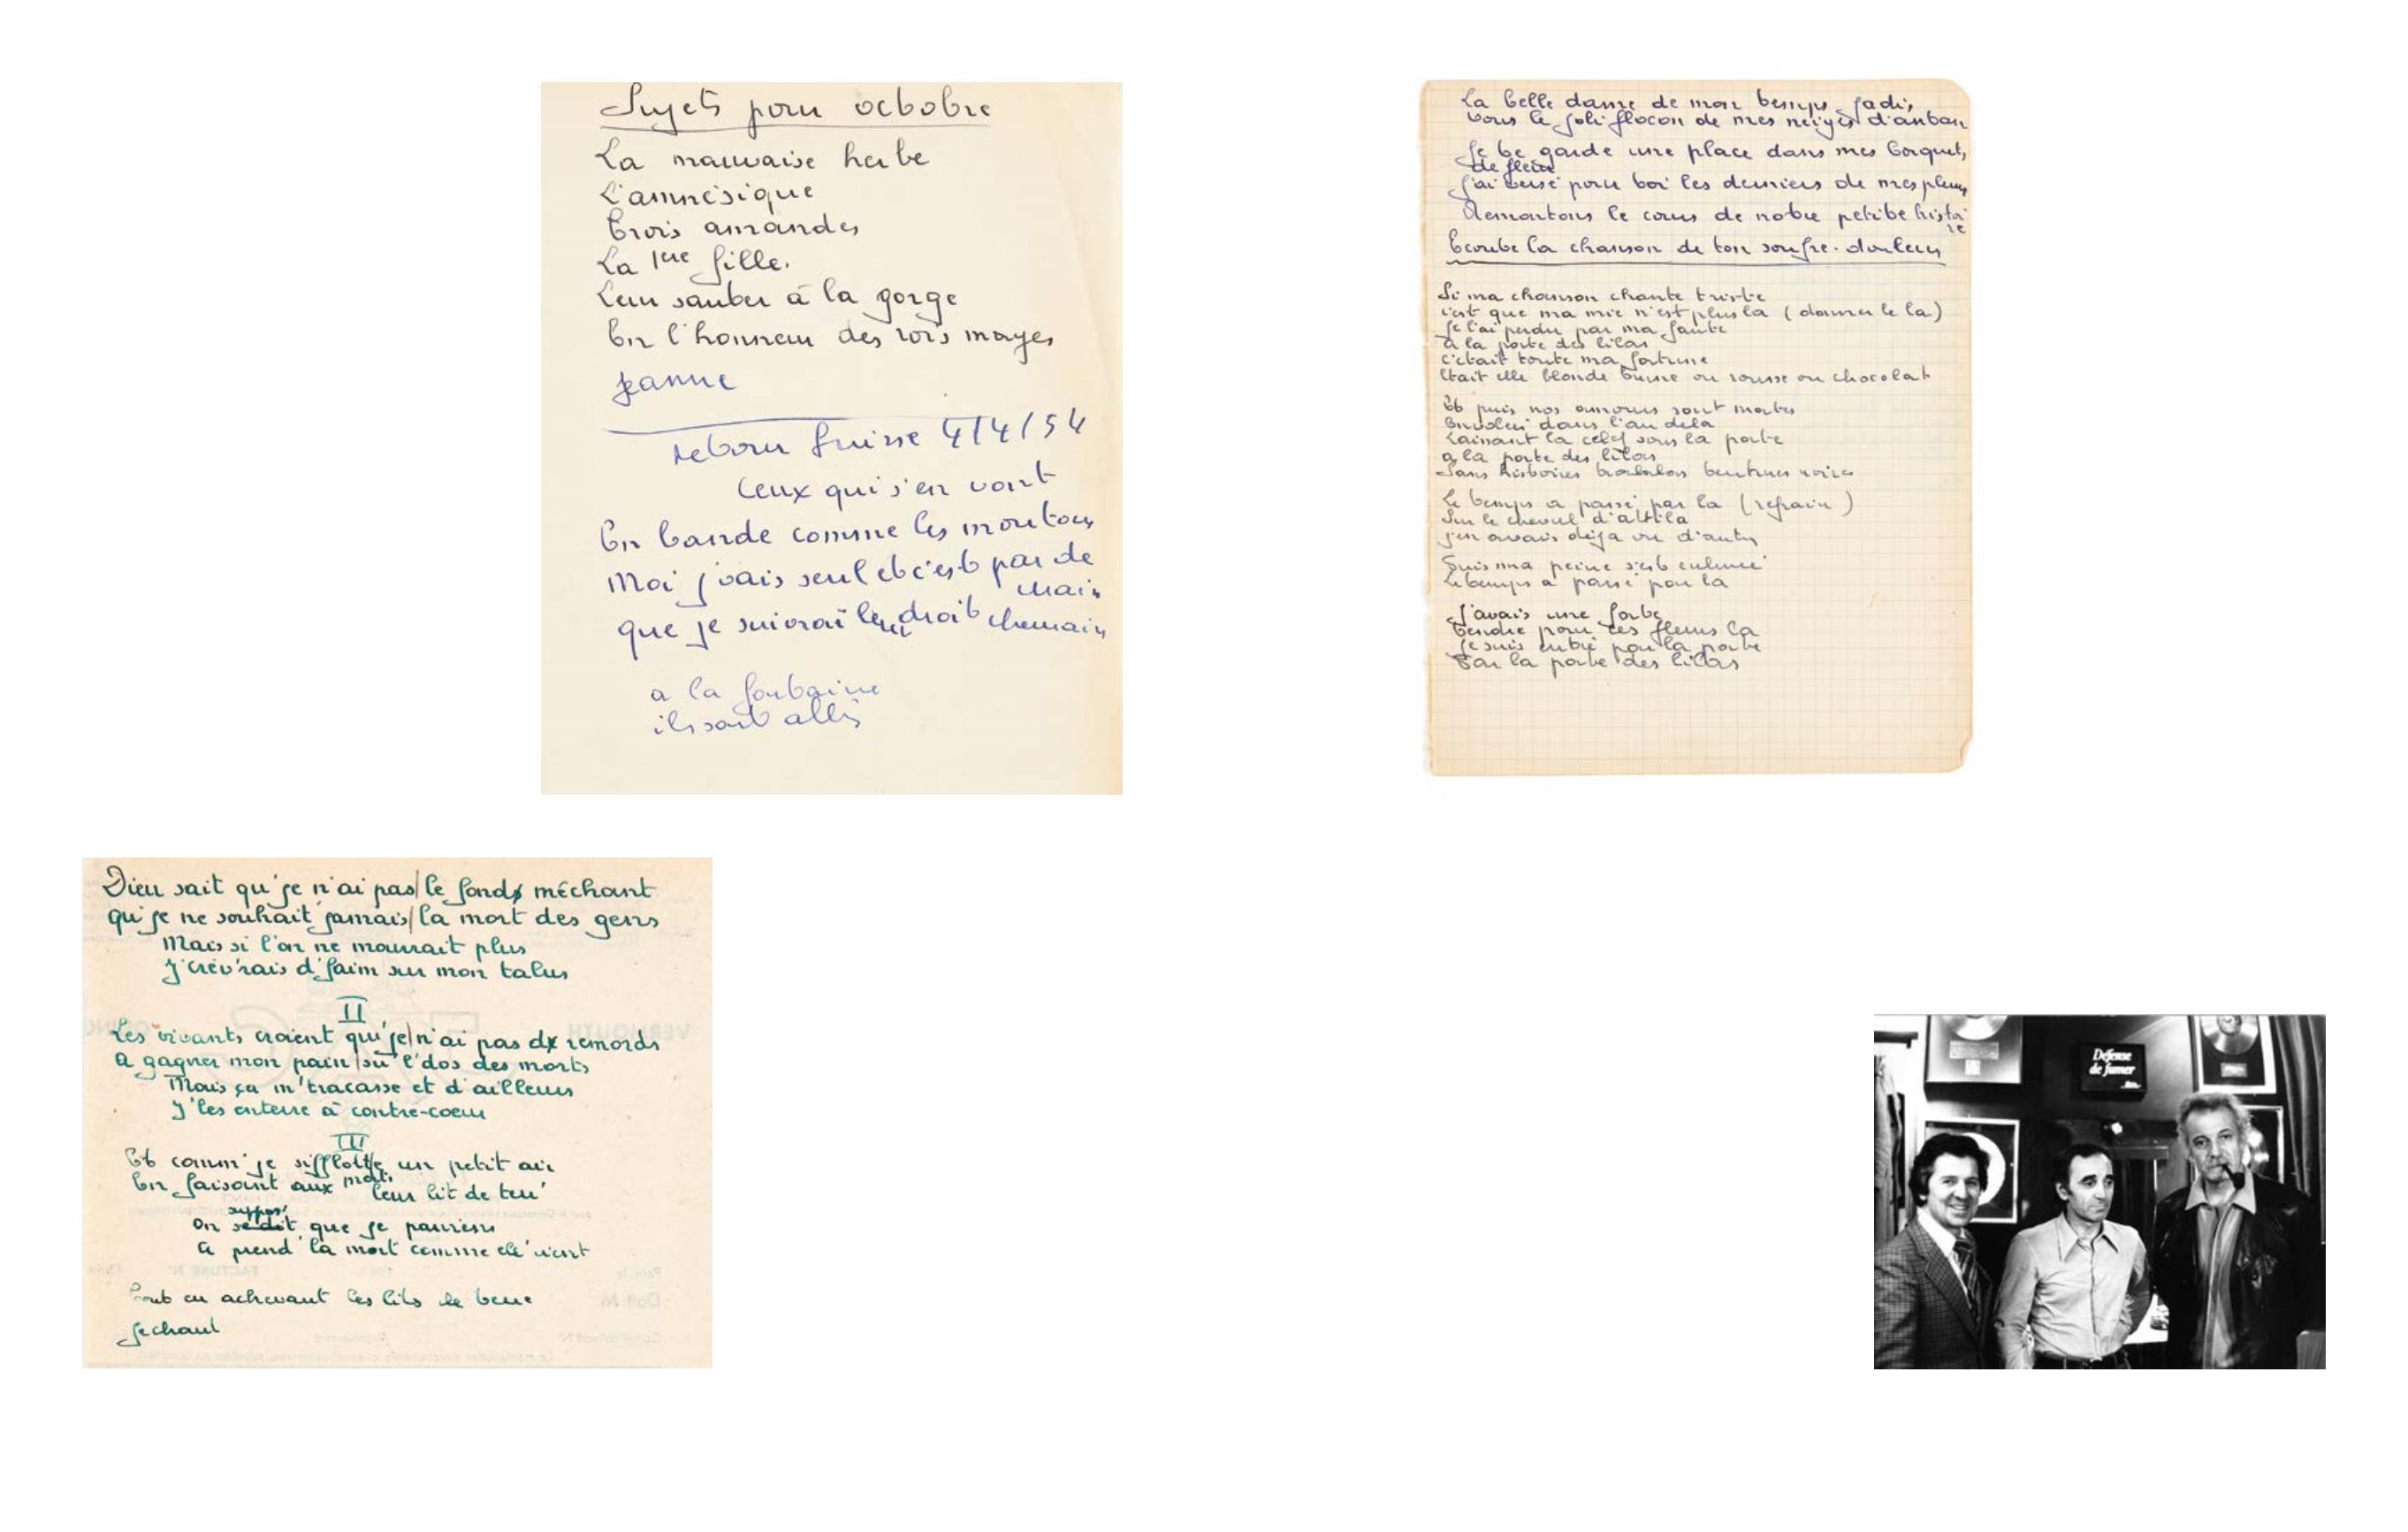 Sujets pour octobre
La mauvaise herbe
L'amnésique
Trois amandes
La 1ere fille.
Leur sauter à la gorge
En l'honneur des rois mages
Jeanne
retour Suisse 4/4/54
Ceux qui s'en vont
En bande comme les moutons
Moi j'vais seul et c'est pas demain
que je suivrai leur droit chemain
a la fontaine
ils sont allés
La belle dame de mon temps jadis,
vous le joli flocon de mes neiges d'antan
Je te garde une place dans mes bosquets
de fleur
J'ai versé pour toi les derniers de mes pleurs
Remontons le cours de notre petite histoire
Ecoute la chanson de ton soufre-douleur
Si ma chanson chante triste
c'est que ma mie n'est plus la (donner le la)
Je l'ai perdu par ma faute
a la porte des lilas
c'était toute ma fortune
Etait elle blonde brune ou rousse ou chocolat
Et puis nos amours sont mortes
Envolei dans l'au dela
Laissant la clef sous la porte
a la porte des lilas
Sans histoires tralalas tentures noires
Le temps a passé par la (refrain)
Sur le cheval d'attila
j'en avais déja vu d'autres
Puis ma peine s'est enfuie
Le temps a passé par la
J'avais une forte
tendre pour ces fleurs la
Je suis entré par la porte
Par la porte des lilas
Dieu sait qu'je n'ai pas le fond méchant
qu'je ne souhait' jamais la mort des gens
Mais si l'on ne mourrait plus
J'crèv'rais d'faim sur mon talus
II
Les vivants croient qu'je n'ai pas d' remords
A gagner mon pain su' l'dos des morts
Mais ça m'tracasse et d'ailleurs
J'les enterre à contre-coeur
III
Et comm' je sifflotte un petit air
En faisant aux morts leur lit de terr'
suppos'
On se dit que je parviens
A prend' la mort comme ell' vient
Tout en achevant les lits de terre
Défense
de fumer